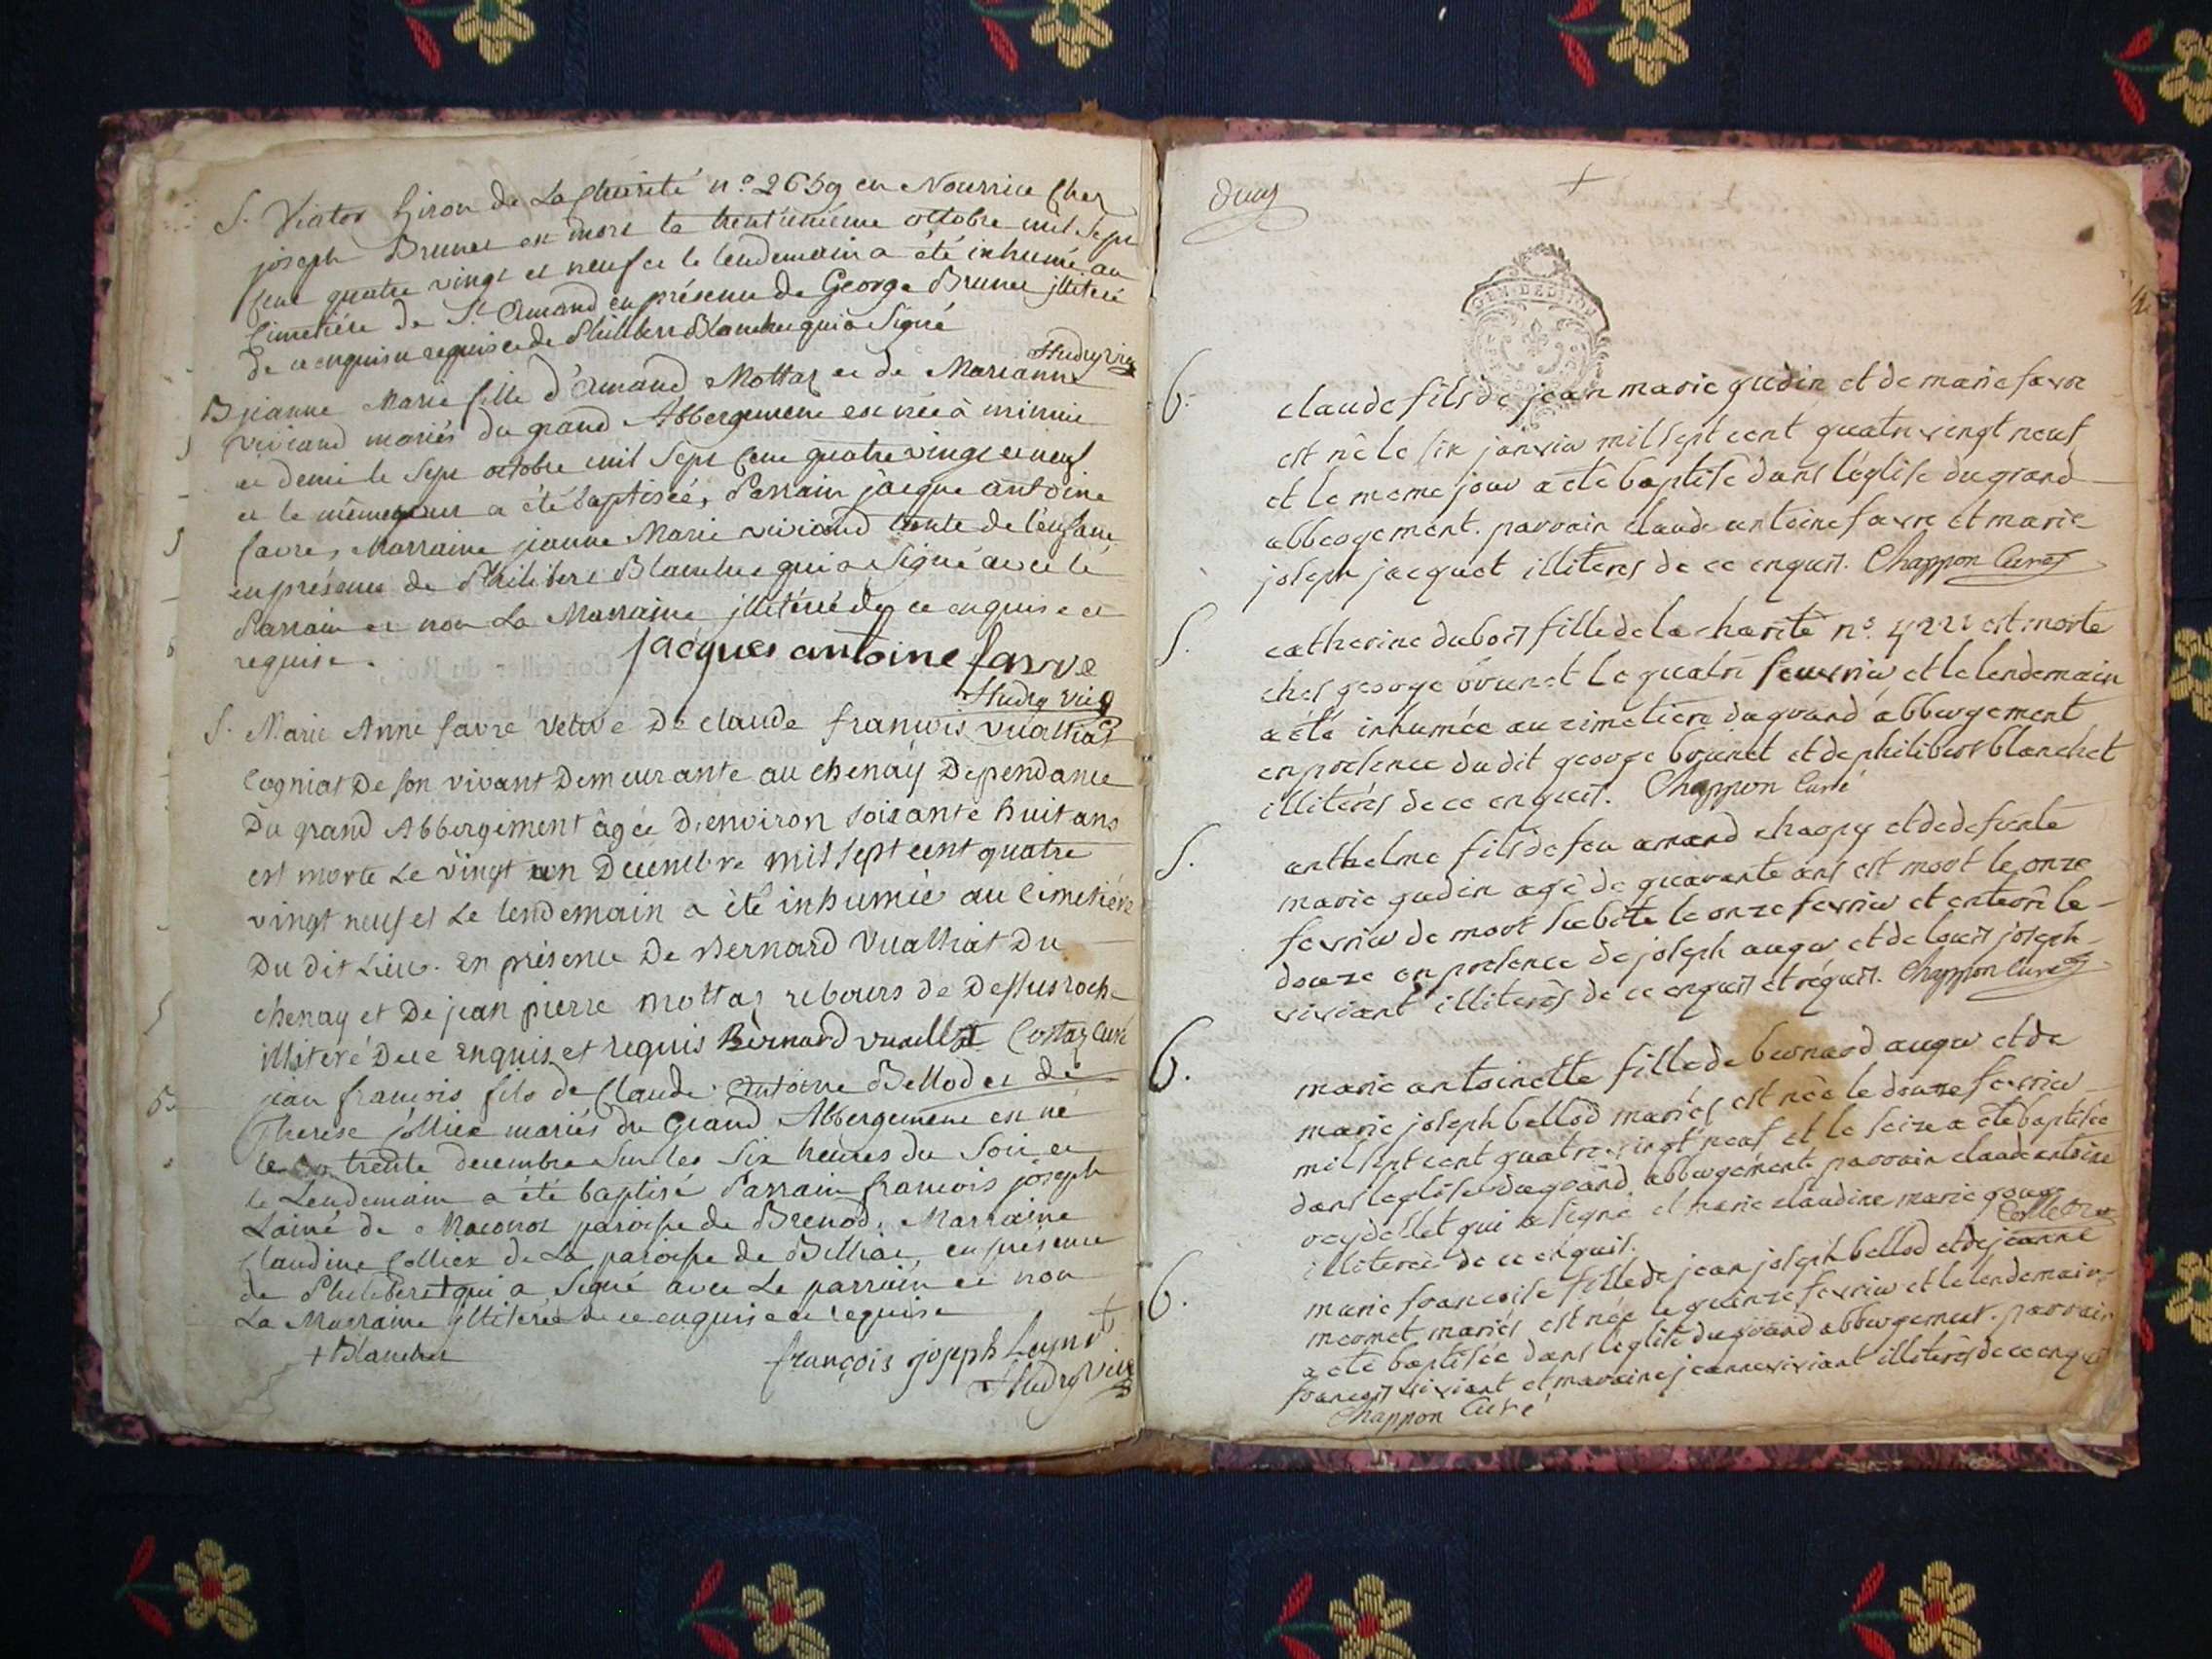 S. Viator Giron de La Charité n° 2659 en Nourrice chez
joseph Brunet est mort le trent'unieme octobre mil sept
cent quatre vingt et neuf et le lendemain a été inhumé au
cimetiére de St Amand en présence de George Brunet illiteré
de ce enquis et requis et de Philibert Blanchet qui a signé
Hudry vic
B jeanne Marie fille d'Amand Mottaz et de Marianne
viviand mariés du grand Abbergement est née à minuit
et demi le sept octobre mil sept cent quatre vingt et neuf
et le même jour a été baptisée, Parrain jacque antoine
favre, Marraine jeanne Marie viviand tante de l'enfant
en présence de Philibert Blanchet qui a signé avec le
Parrain et non La Marraine illitérée de ce enquise et
requise.
jacques antoine favre
Hudry vic
S. Marie Anne favre veuve De claude françois vuailliat
cogniat De son vivant Demeurante au chenay Dependance
Du grand Abbergement âgée D'environ soixante huit ans
est morte Le vingt un Decembre mil sept cent quatre
vingt neuf et Le lendemain a été inhumée au cimetiére
Du dit Lieu. En présence De Bernard Vuailliat Du
chenay et De jean pierre mottaz rebours de Dessus roche
illiteré De ce enquis et requis Bernard vuaillat Costaz curé
B jean françois fils de Claude Antoine Bellod et de
Therese jollier mariés du Grand Abbergement est né
le trente decembre sur les six heures du soir et
le Lendemain a été baptisé Parrain françois joseph
Lainé de Maconod paroisse de Brenod. Marraine
Claudine Collier de La paroisse de Belliac, en présence
de Philibert + qui a signé avec Le parrain et non
La Marraine illiterée de ce enquise et requise
+ Blanchet
françois joseph Leyné
Hudry vic
GEN DE DIJON
B. claude fils de jean marie gudin et de marie favre
est né le six janvier mil sept cent quatre vingt neuf
et le meme jour a eté baptisé dans l'église du grand
abbergement. parrain claude antoine favre et marie
joseph jacquet illiterés de ce enquis. Chappon Curé
S. catherine dubois fille de la charité n° 4221 est morte
chez george brunet le quatre fevrier et le lendemain
a eté inhumée au cimetiere du grand abbergement
en presence du dit george brunet et de philibert blanchet
illiterés de ce enquis. Chappon Curé
S. anthelme fils de feu amand chapuy et de defunte
marie gudin agé de quarante ans est mort le onze
fevrier de mort subite le onze fevrier et enterré le
douze en presence de joseph auger et de louis joseph
viviant illiterés de ce enquis et requis. Chappon Curé
B. marie antoinette fille de bernard auger et de
marie joseph bellod mariés est née le douze fevrier
mil sept cent quatre vingt neuf et le seize a eté baptisée
dans l'eglise du grand abbergement parrain claude antoine
reydellet qui a signé et marie claudine marie
illiterée de ce enquis.
B. marie françoise fille de jean joseph bellod et de jeanne
mermet mariés est née le quinze fevrier et le lendemain
a eté baptisée dans l'eglise du grand abbergement. parrain
françois viviant et maraine jeanne viviant illiterés de ce enquis
Chappon Curé